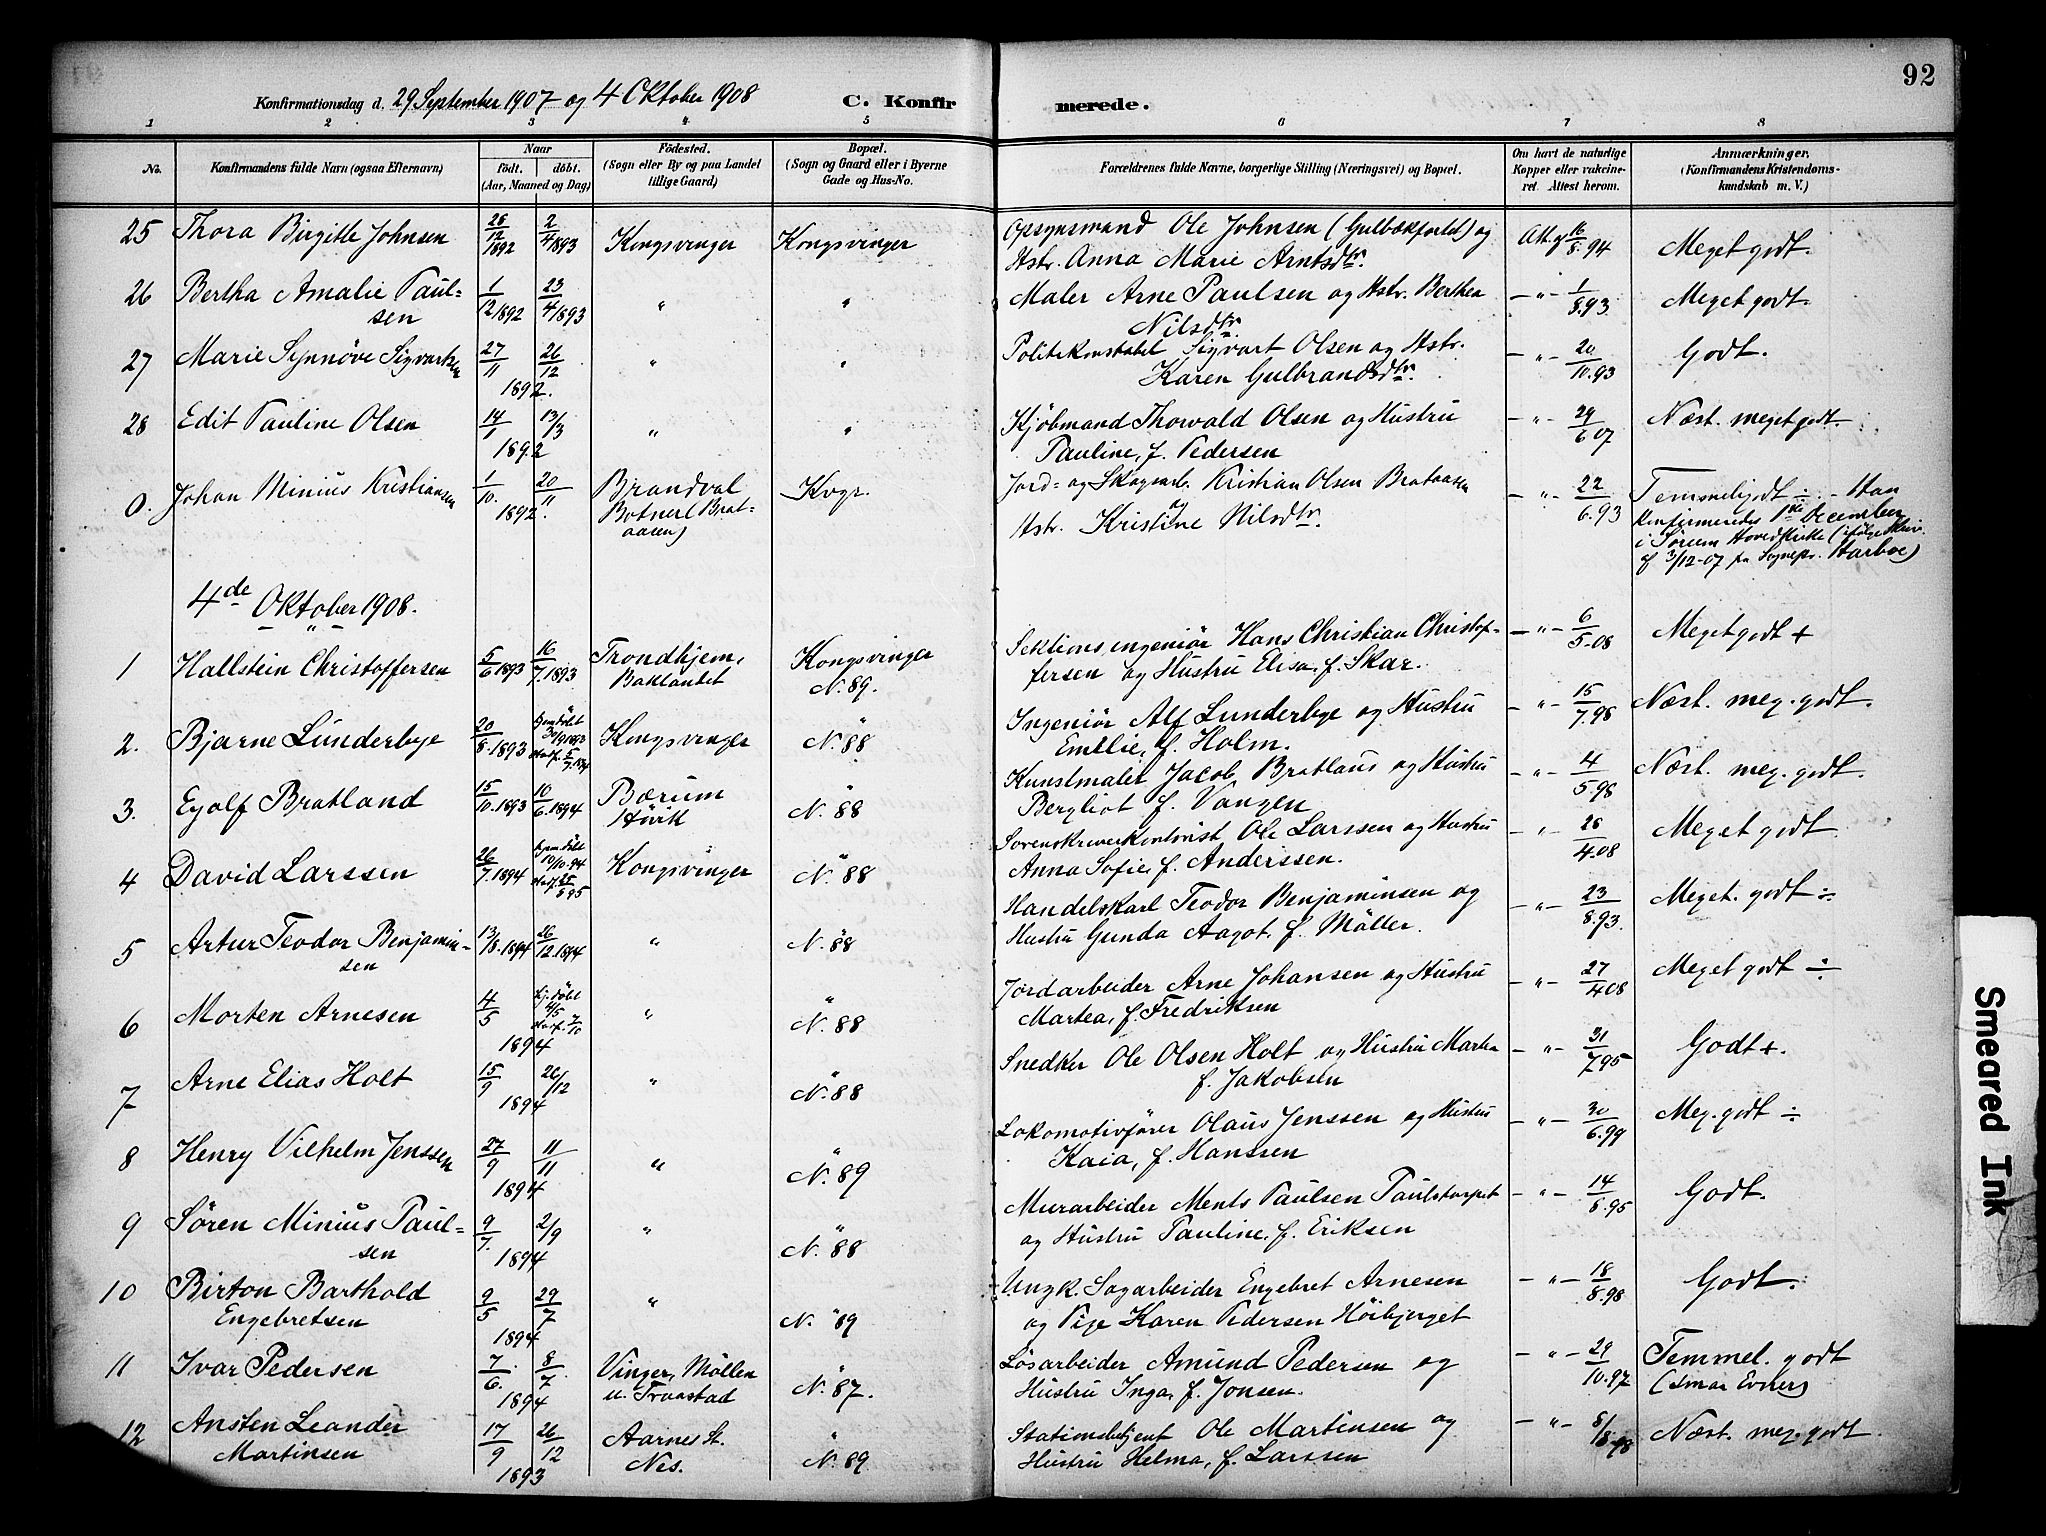 92
Konfirmationsdag d. 29 September 1907 og 4 Oktober 1908 C. Konfirmerede.
1 2 3 4 5 6 7 8
No. Konfirmandens fulde Navn (ogsaa Efternavn) Naar født. døbt. (Aar, Maaned og Dag) Födested. (Sogn eller By og paa Landet tillige Gaard) Bopæl. (Sogn og Gaard eller i Byerne Gade og Hus-No. Forældrenes fulde Navne, borgerlige Stilling (Næringsvei) og Bopæl. Om havt de naturlige Kopper eller vakcineret. Attest herom. Anmærkninger. (Konfirmandens Kristendomskundskab m. V.)
25 Thora Birgitte Johnsen 28/12 1892 2/4 1893 Kongsvinger Kongsvinger Opsynsmand Ole Johnsen (Gulbækfortet) og Att. af 16/8.94 Meget godt.
Hstr. Anna Marie Arntsdtr.
26 Bertha Amalie Paul= 1/12 1892 23/4 1893 " " Maler Arne Paulsen og Hstr. Berthea — " — 1/8.93 Meget godt.
sen Nilsdtr.
27 Marie Synnöve Sigvartsen 27/11 26/12 " " Politikonstabel Sigvart Olsen og Hstr. — " — 20/10.93 Godt.
1892. Karen Gulbrandsdtr.
28 Edit Pauline Olsen 14/1 13/3 " " Kjöbmand Thorvald Olsen og Hustru — " — 29/6 07 Næst. meget godt.
1892 Pauline, f. Pedersen
0. Johan Minius Kristiansen 1/10. 20/11 Brandval Kvgr. Jord= og Skogsarb. Kristian Olsen Brataasen — " — 22/6.93 Temmeligodt ÷. - Han
1892. Botner (Brat- Hstr. Kristine Nilsdtr. Konfirmeredes 1ste December
aasen) i Hovedkirke (ifølge
af 3/12-07 fra Sognepr. Harboe)
4de Oktober 1908.
1 Hallstein Christoffersen 5/6 1893 16/7. 1893 Trondhjem, Kongsvinger Sektionsingeniör Hans Christian Christof- — " — 6/5.08 Meget godt +
Baklandet N. 89. fersen og Hustru Elisa, f. Skar.
2. Bjarne Lunderbye 20/8. 1893 hjemdöbt Kongsvinger N. 88 Ingeniör Alf Lunderbye og Hustru — " — 15/7.98 Næst. meg. godt.
Emilie, f. Holm.
3. Eyolf Bratland 15/10. 1893 10/6. 1894 Bærum N. 88 Kunstmaler Jacob Bratland og Hustru — " — 4/5.98 Næst. meg. godt.
Hövik Bergliot f. Vangen
4 David Larssen 26/7. 1894 hjemdöbt 10/10.94 Kongsvinger N. 88 Sorenskriverkontorist Ole Larssen og Hustru — " — 28/4.08 Meget godt
Anna Sofie, f. Anderssen.
5 Artur Teodor Benjamin- 13/8. 1894 26/12. 1894 " N. 88 Handelskarl Teodor Benjaminsen og — " — 23/8.93. Meget. godt ÷
sen Hustru Gunda Aagot. f. Möller.
6 Morten Arnesen 4/5 hj. döbt " N. 88 Jordarbeider Arne Johansen og Hustru — " — 27/4 08 Meget godt ÷
1894 Martea, f. Fredriksen
7 Arne Elias Holt 15/9 26/12 " N. 88 Snedker Ole Olsen Holt og Hustru Martea — " — 31/7 95 Godt +.
1894 f. Jakobsen
8 Henry Vilhelm Jenssen 27/9 11/11 " N. 89 Lokomotivförer Olaus Jenssen og Hustru — " — 30/6.99 Meg. godt ÷
1894 Kaia, f. Hanssen
9 Sören Minius Paul= 9/7. 2/9 " N. 88 Murarbeider Ments Paulsen Paulstorpet — " — 14/8.95 Godt.
sen 1894 og Hustru Pauline. f. Eriksen
10 Birton Barthold 9/5 29/7 " N. 89 Ungk. Sagarbeider Engebret Arnesen — " — 18/8.98 Godt.
Engebretsen 1894 og Pige Karen Pedersen Höibjerget
11 Ivar Pedersen 7/6. 8/7. Vinger, Möllen N. 87. Lösarbeider Amund Pedersen og — " — 29/10.97 Temmel. godt
1894 u. Hustru Inga, f. Jonsen. (smaa Evner)
12 Ansten Leander 17/9 26/12 Aarnes St. N. 89 Stationsbetjent Ole Martinsen og — " — 8/8.98 Næst. meg. godt.
Martinsen 1893 Nes. Hustru Helma, f. Larssen
Smeared Ink